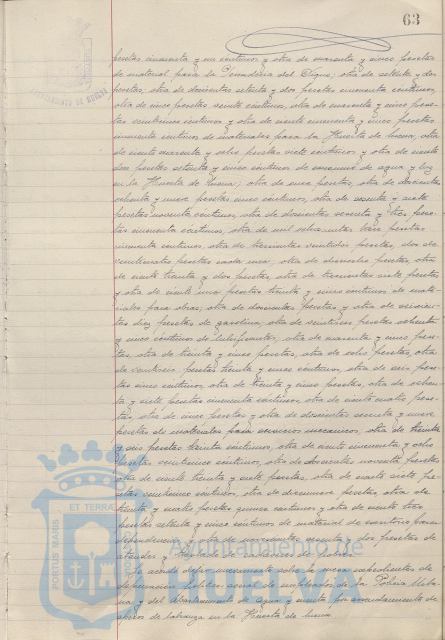 63
pesetas cincuenta y un centimos y otra de cuarenta y cinco pesetas
de material para la Panaderia del Dique; otra de setenta y dos
pesetas, otra de doscientas setenta y dos pesetas cincuenta centimos,
otra de cinco pesetas veinte centimos, otra de cuarenta y cinco pese-
tas veinticinco centimos y otra de ciento cincuenta y cinco pesetas
cincuenta centimos de materiales para la Huerta de
de ciento cuarenta y ocho pesetas siete centimos y otra de ciento
dos pesetas setenta y cinco centimos de consumo de agua y luz
en la Huerta de otra de once pesetas, otra de doscientas
ochenta y nueve pesetas cinco centimos, otra de noventa y siete
pesetas noventa centimos, otra de doscientas sesenta y tres pese-
tas cincuenta centimos, otra de mil trece pesetas
cincuenta centimos, otra de trescientas veintidos pesetas, dos de
pesetas cada una, otra de dieciocho pesetas, otra
de ciento treinta y dos pesetas, otra de trescientas siete pesetas
y otra de ciento una pesetas treinta y cinco centimos de mate-
riales para obras, otra de doscientas pesetas y otra de seiscien-
tas diez pesetas de gasolina, otra de veintitres pesetas ochenta
y cinco centimos de lubrificantes, otra de cuarenta y cinco pese-
tas, otra de treinta y cinco pesetas, otra de ocho pesetas, otra
de pesetas treinta y cinco centimos, otra de seis pese-
tas cinco centimos, otra de treinta y cinco pesetas, otra de ochen-
ta y siete pesetas cincuenta centimos, otra de ciento cuatro pese-
tas, otra de cinco pesetas y otra de doscientas sesenta y nueve
pesetas de materiales para servicios mecanicos, otra de treinta
y seis pesetas treinta centimos, otra de ciento cincuenta y ocho
pesetas veinticinco centimos, otra de doscientas noventa pesetas
otra de ciento treinta y siete pesetas, otra de ciento siete pe-
setas veinticinco centimos, otra de diecinueve pesetas, otra de
treinta y cuatro pesetas quince centimos y otra de ciento tres
pesetas setenta y cinco centimos de material de escritorio para
dependencias y otra de novecientas sesenta y dos pesetas de
Se acordó dejar nuevamente sobre la mesa expedientes de
de la Policia Urba-
na y del Departamento de agua y cuenta por arrendamiento de
de labranza en la Huerta de
AYUNTAMIENTO DE HUELVA
PORTUS MARIS ET TERRAE
Ayuntamiento de
HUELVA